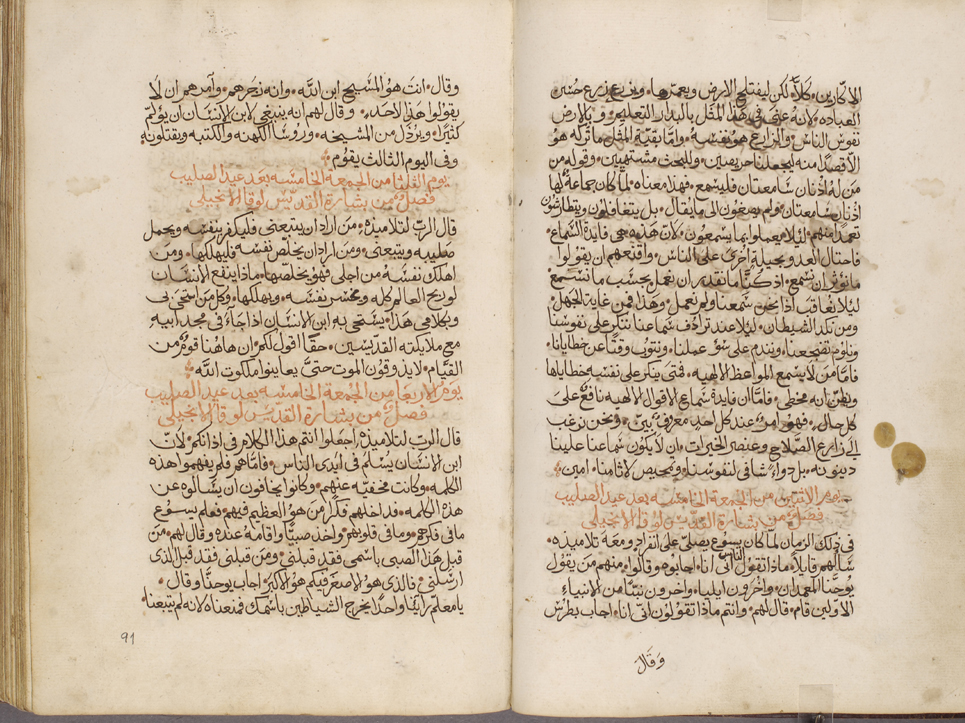 الاكارين، كلا، لكن ليفتلح الارض ويعمرها، ويزرع زرع حُسن
العباده، لانه عنى في هذا المثل بالبدار التعليم، وبالارض
نفوس الناس، والزارع هو نفسه، واما بقية المثل ما تركه هو
الا قصدًا منه ليجعلنا حريصين، وللبحث مشتهيين، وقوله من
من له اذنان سامعتان فليسمع، فهذا معناه لما كان جماعة لها
اذنان سامعتان، ولم يصغون الى ما يقال، بل يتغافلون ويتطارشون
تعمدًا منهم، ليلا يعملوا بما يسمعون، لان هذه هي فايدة السماع،
فاحتال العدو بحيلةٍ اخرى على الناس، واقنعهم ان يقولوا
ما نوثر ان نسمع، اذ كنا ما نقدر ان نعمل بحسب ما نسمع
ليلا نعاقب اذا نحن سمعنا ولم نعمل، وهذا فمن غاية الجهل،
ومن نكد الشيطان، ليلا عند ترادف سماعنا نتنكر على نفوسنا
ونلوم تضجعنا، ونندم على سو عملنا، ونتوب وقتًا عن خطايانا،
فاما من لا يسمع المواعظ الالهيه، فمتى يتكر على نفسه خطاياها
ويظن انه مخطي، فاما ان فايدة سماع الاقوال الالهيه نافع على
كل حال، فهو امرٌ عند كل احدٍ معروفٌ بين، ونحن نرغب
الى زارع الصلاح وعنصر الخيرات، ان لا يكون سماعنا علينا
دينونه، بل دواءً شافي لنفوسنا، وتمحيص لاثامنا، امين،
يوم الاثنين من الجمعة الخامسه بعد عيد الصليب
فصل من بشارة القديس لوقا الانجيلي
في ذلك الزمان لما كان يسوع يصلي على انفراد ومعه تلاميذه،
سالهم قايلاً، ماذا تقول الناس اني انا، اجابوه وقالوا، منهم من يقول
يوحنا المعمدان، واخرون ايليا، واخرون نبيًا من الانبياء
الاولين قام، قال لهم، وانتم ماذا تقولون اني انا، اجاب بطرس
وقال
وقال، انت هو المسيح ابن الله، وانه زجرهم، وآمرهم ان لا
يقولوا هذا لاحد، وقال لهم انه ينبغي لابن الانسان ان يؤلم
كثيرًا، ويرذل من المشيخه، وروسا الكهنه والكتبه ويقتلونه
وفى اليوم الثالث يقوم،
يوم الثلثا من الجمعة الخامسه بعد عيد الصليب
فصل من بشارة القديس لوقا الانجيلي
قال الرب لتلاميذه، من اراد ان يتبعني، فليكفر بنفسه ويحمل
صليبه ويتبعنى، ومن اراد ان يخلص نفسه فليهلكها، ومن
اهلك نفسه من اجلى فهو يخلصها، ماذا ينفع الانسان
لو ربح العالم كله، ويخسر نفسه، ويهلكها، وكل من استحى بى
وبكلامي هذا، يستحى به ابن الانسان اذا جاءَ فى مجد ابيه
مع ملايكته القديسين، حقًا اقول لكم، ان هاهنا قوم من
القيام، لا يذوقون الموت حتىَّ يعاينوا ملكوت الله،
يوم الاربعا من الجمعة الخامسه بعد عيد الصليب
فصل من بشارة القديس لوقا الانجيلي
قال الرب لتلاميذه احفلوا انتم هذا الكلام فى اذانكم، لان
ابن الانسان يسلم فى ايدى الناس، فاما هم فلم يفهموا هذه
الكلمه، وكانت مخفيه عنهم، وكانوا يخافون ان يسالوه عن
هذه الكلمه، فداخلهم فكرًا من هو العظيم فيهم، فعلم يسوع
ما فى فكرهم، وما فى قلوبهم، واخذ صبيًا واقامه عنده وقال لهم، من
قبل هذا الصبى باسمى فقد قبلنى، ومن قبلنى فقد قبل الذى
ارسلنى، فالذى هو الاصغر فيكم هو الاكبر، اجاب يوحنا وقال،
يا معلم راينا واحدًا يخرج الشياطين باسمك فمنعناه لانه لم يتبعنا،
91